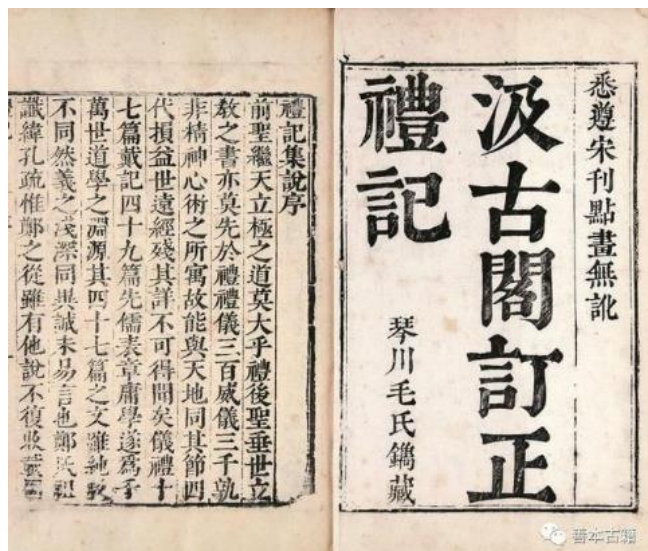 悉遵宋刊點畫無訛
汲古閣訂正
禮記
琴川毛氏鐫藏
禮記集說序
前聖繼天立極之道莫大乎禮後聖垂世立
教之書亦莫先於禮禮儀三百威儀三千孰
非精神心術之所寓故能與天地同其節四
代損益世遠經殘其詳不可得聞矣儀禮十
七篇戴記四十九篇先儒表章庸學遂為千
萬世道學之淵源其四十七篇之文雖純駁
不同然義之淺深同異誠未易言也鄭氏祖
讖緯孔疏惟鄭之從雖有他說不復收載固
善本古籍